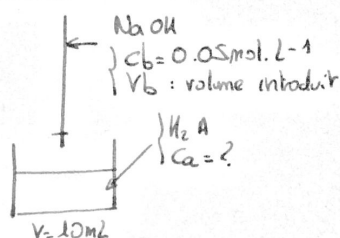 NaOH
Cb = 0.05mol.L-1
Vb : volume introduit
H2A
Ca = ?
V = 10mL